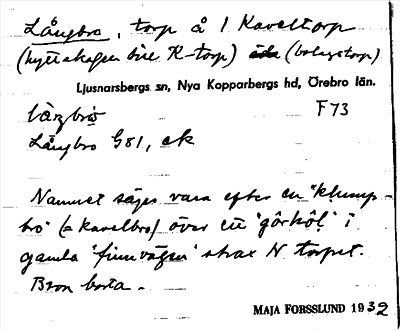 Långbro, torp å 1 Kaveltorp
(hyttskogen bire K-torp) (bolagstorp)
Ljusnarsbergs sn, Nya Kopparbergs hd, Örebro län.
F73
Långbro G81, ek
Namnet säges vara efter en "klump-
bro" (= kavelbro) över ett 'gôrhôl' i
gamla 'finnvägen' strax N torpet.
Bron borta.
MAJA FORSSLUND 1932